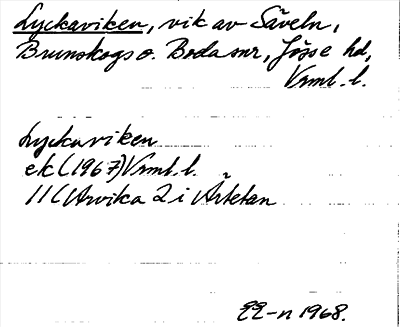 Lyckaviken, vik av Säveln,
Brunskogs o. Boda snr, Jösse hd,
Vrml. l.
Lyckaviken
ek (1967) Vrml. l.
11 ( Arvika 2 i
-n 1968.